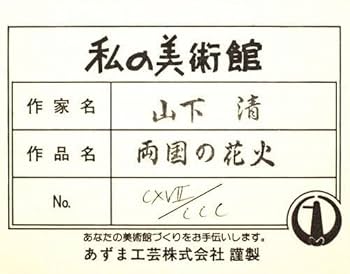 私の美術館
作家名 山下 清
作品名 両国の花火
No. CXVII/CCC
あなたの美術館づくりをお手伝いします。
あずま工芸株式会社 謹製